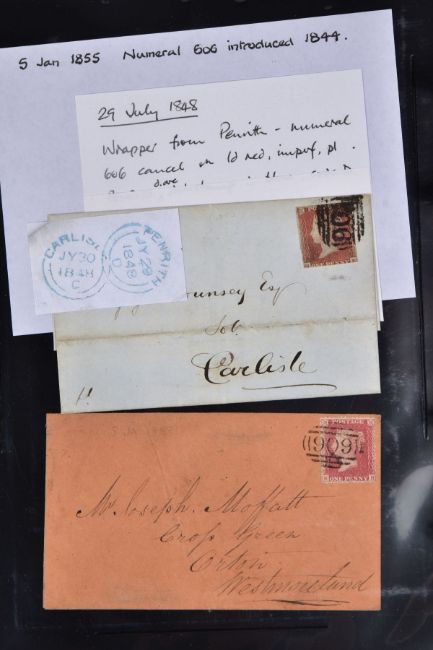 5 Jan 1855 Numeral 606 introduced 1844.
29 July 1848
Wrapper from Penrith - numeral
606 cancel on 1d red, imperf, pl.
CARLISLE
JY 30
1848
C
PENRITH
JY 29
1848
Esq
Sol.
Carlisle
POSTAGE
606
ONE PENNY
Mr. Joseph. Moffatt
Crofs Green
Orton
Westmoreland